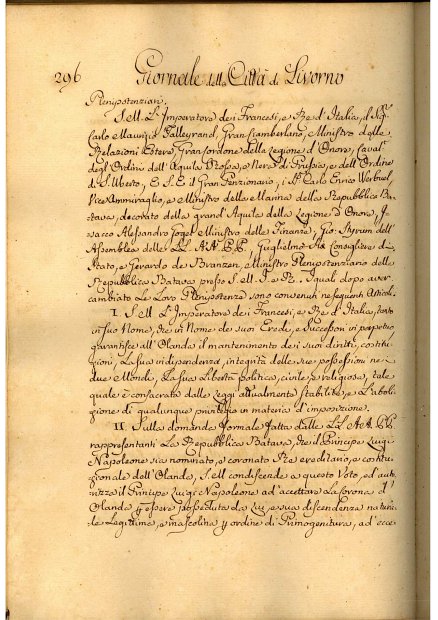 296 Giornale della Città di Livorno
Plenipotenziari.
S. M. L'Imperatore dei Francesi, e Re d'Italia, il Sig.
Carlo Maurizio Talleyrand, Gran Ciamberlano, Ministro delle
Relazioni Estere, Gran Cordone della Legione d'Onore, Caval.
degl'Ordini dell'Aquila Rossa, e Nera di Prussia, e dell'Ordine
di S. Uberto, E S. E. il Gran Penzionario; i SS. Carlo Enrico Werhuel,
Vice Ammiraglio, e Ministro della Marina della Repubblica Ba-
tava, decorato della grand'Aquila della Legione d'Onore, I-
sacco Alessandro Gogel Ministro delle Finanze, Gio: Styrum dell'
Assemblea delle LL. AA. PP., Guglielmo Six Consigliere di
Stato, e Gerardo de Branzen, Ministro Plenipotenziario della
Repubblica Batava presso S. M. I. e R. I quali dopo aver
cambiato Le Loro Plenipotenze sono convenuti ne seguenti Articoli.
I. S. M. L'Imperatore dei Francesi, e Re d'Italia, tanto
in suo Nome, che in Nome de suoi Eredi, e Successori in perpetuo
garantisce all'Olanda il mantenimento de i suoi diritti, costitu-
zioni, La sua indipendenza, integrità delle sue possessioni ne i
due Mondi, La sua Libertà politica, civile, e religiosa, tale
quale è consacrata dalle Leggi attualmente stabilite, e L'aboli-
zione di qualunque privilegio in materia d'imposizione.
II. Sulla domanda formale fatta dalle LL. AA. PP.
rappresentanti La Repubblica Batava, che il Principe Luigi
Napoleone sia nominato, e coronato Re ereditario, e costitu-
zionale dell'Olanda, S. M. condiscende a questo Voto, ed auto-
rizza il Principe Luigi Napoleone ad'accettare La Corona d'
Olanda per essere posseduta da Lui, e sua discendenza natura-
le Legittima, e mascolina per ordine di Primogenitura, ad'ecce-